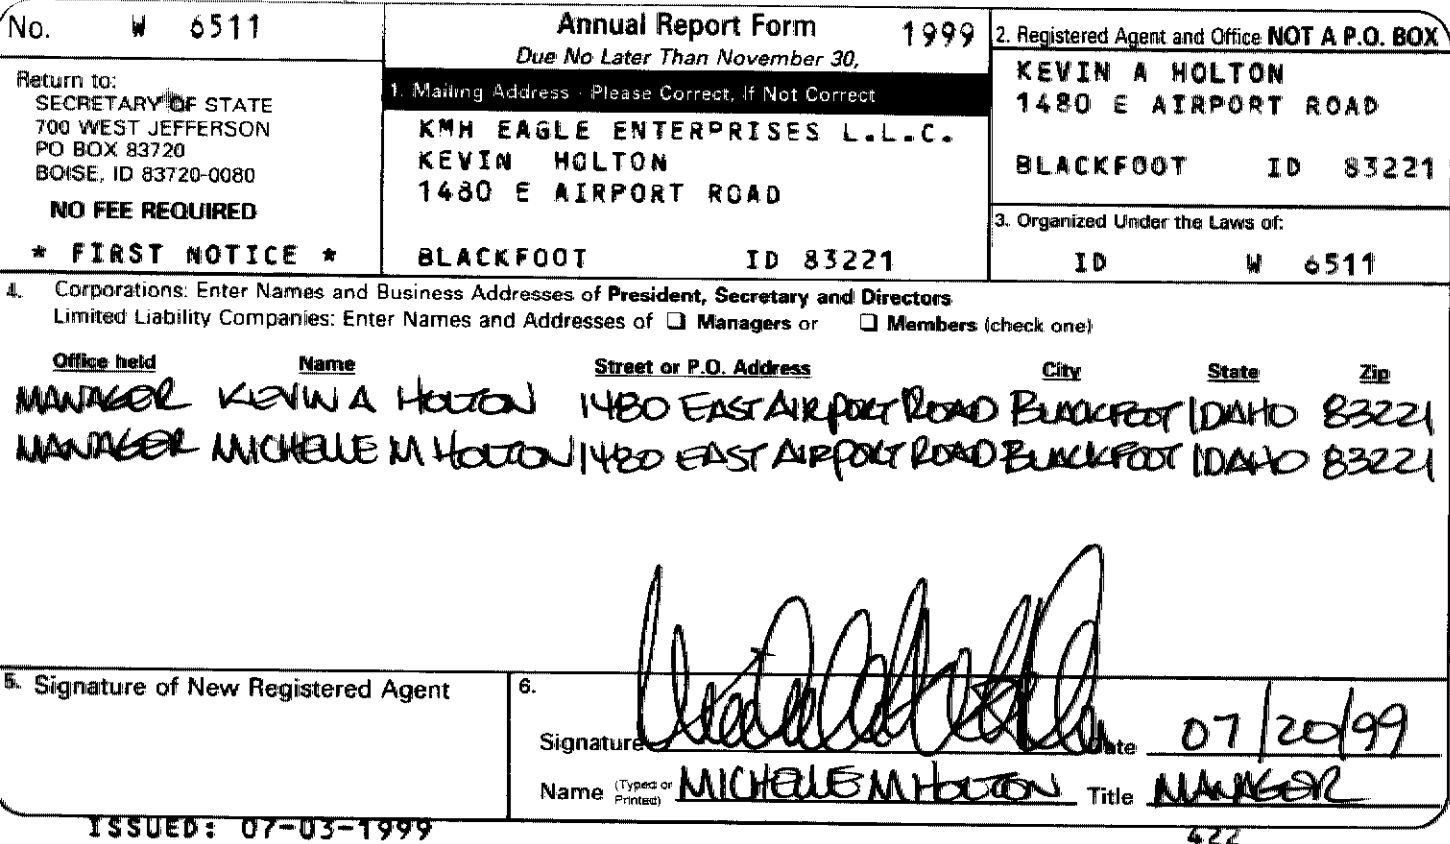 No. W 6511
Annual Report Form 1999
Due No Later Than November 30,
Return to:
SECRETARY OF STATE
700 WEST JEFFERSON
PO BOX 83720
BOISE, ID 83720-0080
NO FEE REQUIRED
* FIRST NOTICE *
1. Mailing Address - Please Correct, If Not Correct
KMH EAGLE ENTERPRISES L.L.C.
KEVIN HOLTON
1480 E AIRPORT ROAD
BLACKFOOT ID 83221
2. Registered Agent and Office NOT A P.O. BOX
KEVIN A HOLTON
1480 E AIRPORT ROAD
BLACKFOOT ID 83221
3. Organized Under the Laws of:
ID W 6511
4. Corporations: Enter Names and Business Addresses of President, Secretary and Directors
Limited Liability Companies: Enter Names and Addresses of ❑ Managers or ❑ Members (check one)
Office held Name Street or P.O. Address City State Zip
MANAGER KEVIN A HOLTON 1480 EAST AIRPORT ROAD BLACKFOOT IDAHO 83221
MANAGER MICHELLE M HOLTON 1480 EAST AIRPORT ROAD BLACKFOOT IDAHO 83221
5. Signature of New Registered Agent
6.
Signature Date 07/20/99
Name (Typed or Printed) MICHELLE M HOLTON Title MANAGER
ISSUED: 07-03-1999
422